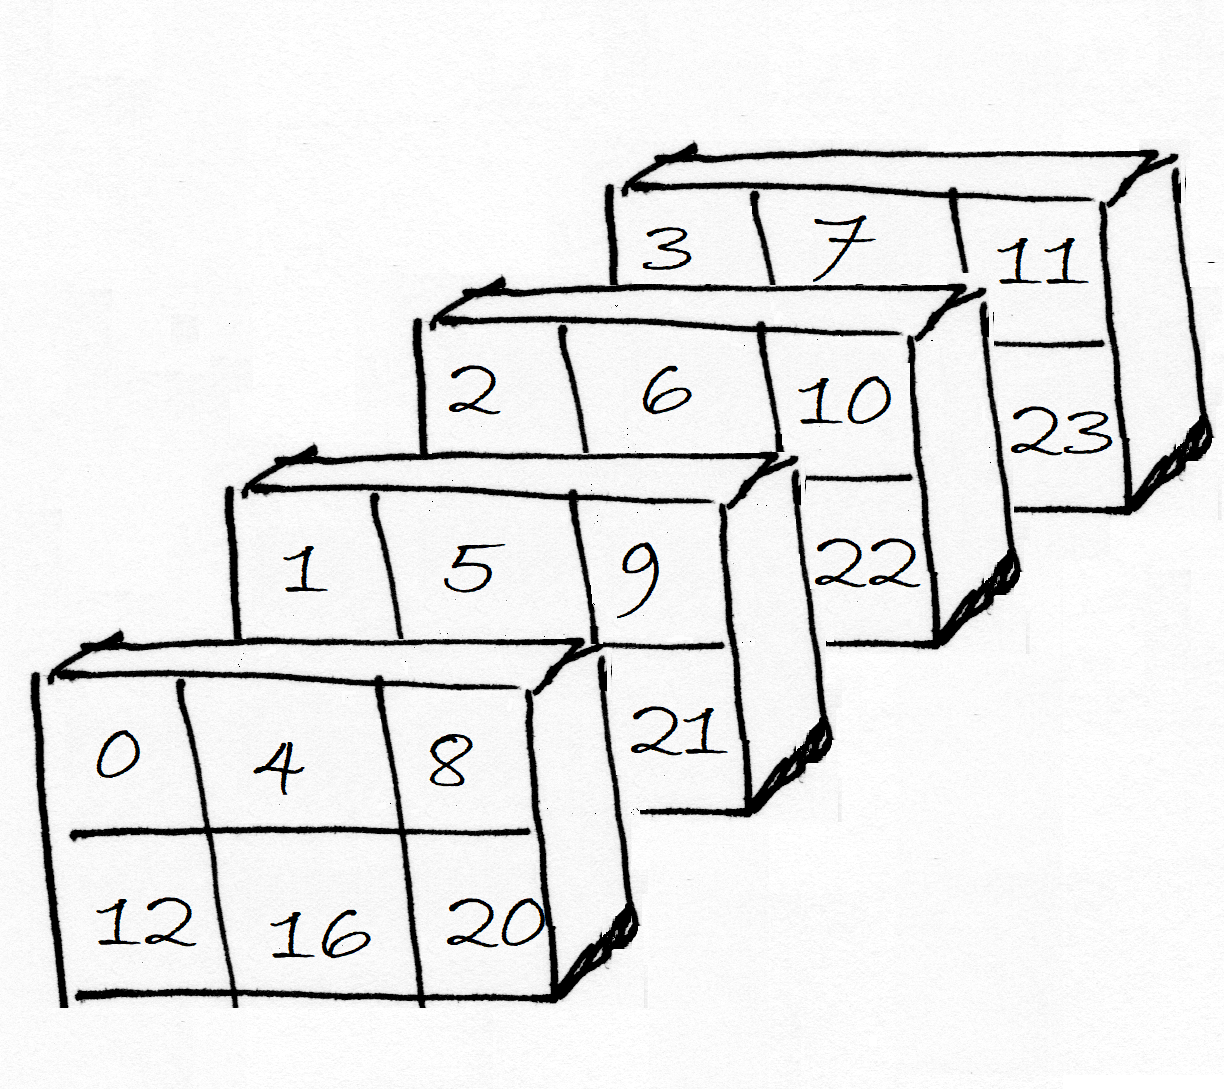 3 7 11
23
2 6 10
22
1 5 9
21
0 4 8
12 16 20